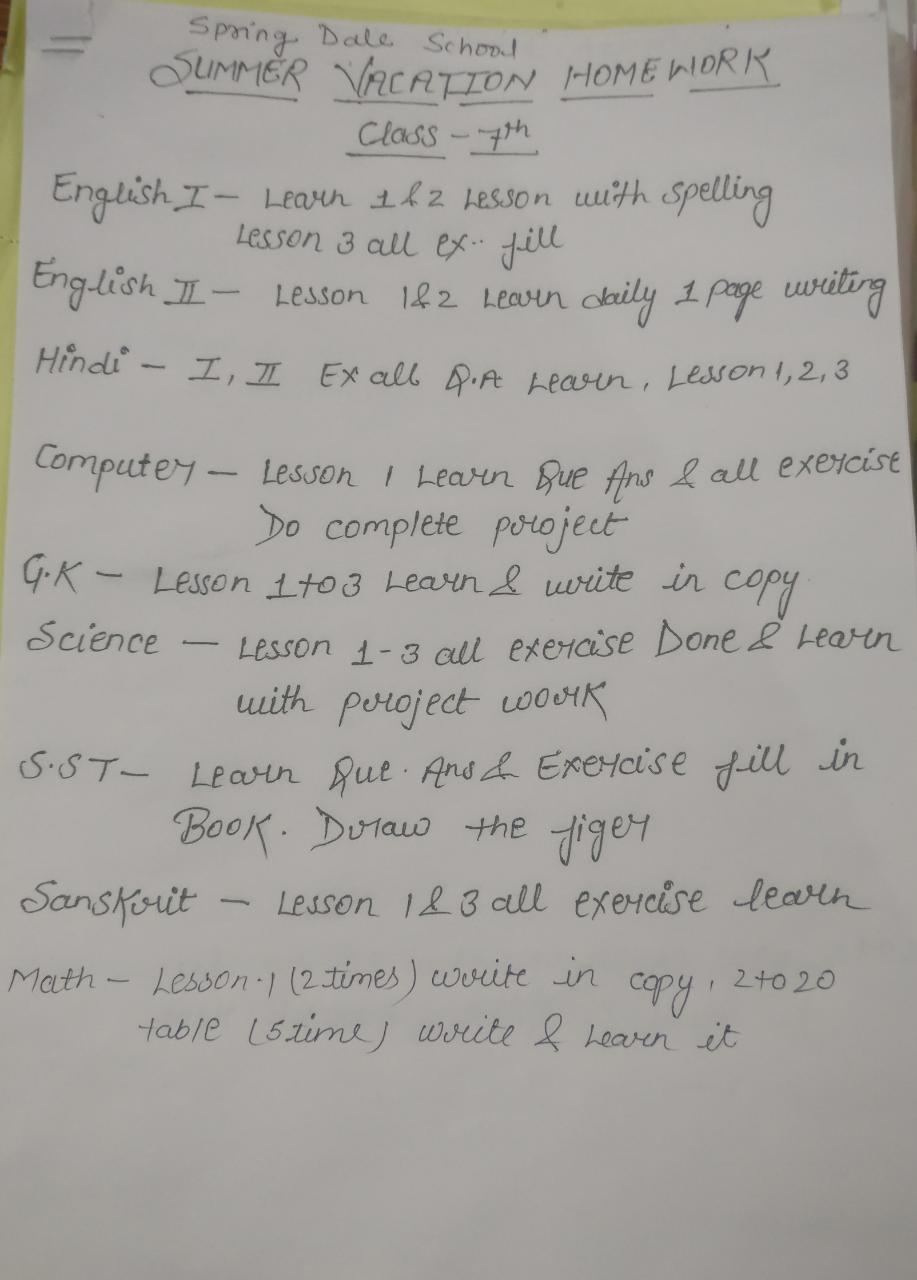 Spring Dale School
SUMMER VACATION HOMEWORK
Class - 7th
English I - Learn 1 & 2 Lesson with spelling
Lesson 3 all ex.. fill
English II - Lesson 1&2 Learn daily 1 page writing
Hindi - I, II Ex all Q.A Learn, Lesson 1, 2, 3
Computer - Lesson 1 Learn Que Ans & all exercise
Do complete project
G.K - Lesson 1 to 3 Learn & write in copy
Science - Lesson 1-3 all exercise Done & Learn
with project work
S.ST - Learn Que. Ans & Exercise fill in
Book. Draw the figer
Sanskrit - Lesson 1 & 3 all exercise learn
Math - Lesson.1 (2 times) write in copy, 2 to 20
table (5 time) write & Learn it